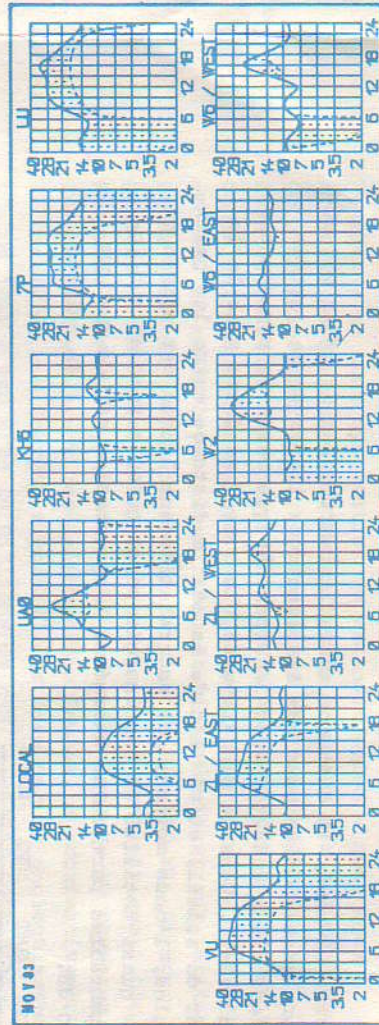 NOV 83
LOCAL
40 28 21 14 10 7 5 3.5 2
0 6 12 18 24
UAØ
40 28 21 14 10 7 5 3.5 2
0 6 12 18 24
KH6
40 28 21 14 10 7 5 3.5 2
0 6 12 18 24
7P
40 28 21 14 10 7 5 3.5 2
0 6 12 18 24
LU
40 28 21 14 10 7 5 3.5 2
0 6 12 18 24
VU
40 28 21 14 10 7 5 3.5 2
0 6 12 18 24
ZL / EAST
40 28 21 14 10 7 5 3.5 2
0 6 12 18 24
ZL / WEST
40 28 21 14 10 7 5 3.5 2
0 6 12 18 24
W2
40 28 21 14 10 7 5 3.5 2
0 6 12 18 24
W6 / EAST
40 28 21 14 10 7 5 3.5 2
0 6 12 18 24
W6 / WEST
40 28 21 14 10 7 5 3.5 2
0 6 12 18 24